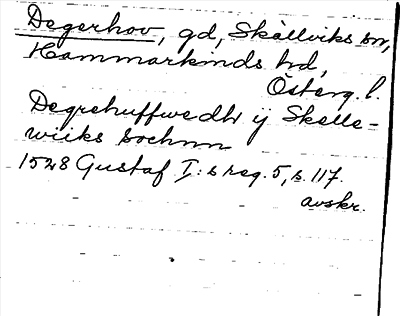 Degerhov, gd, Skällviks sn,
Hammarkinds hd,
Österg. l.
Degrehuffwedh ij Skelle-
wiiks sochnn
1528 Gustaf I:s reg. 5, s. 117.
avskr.